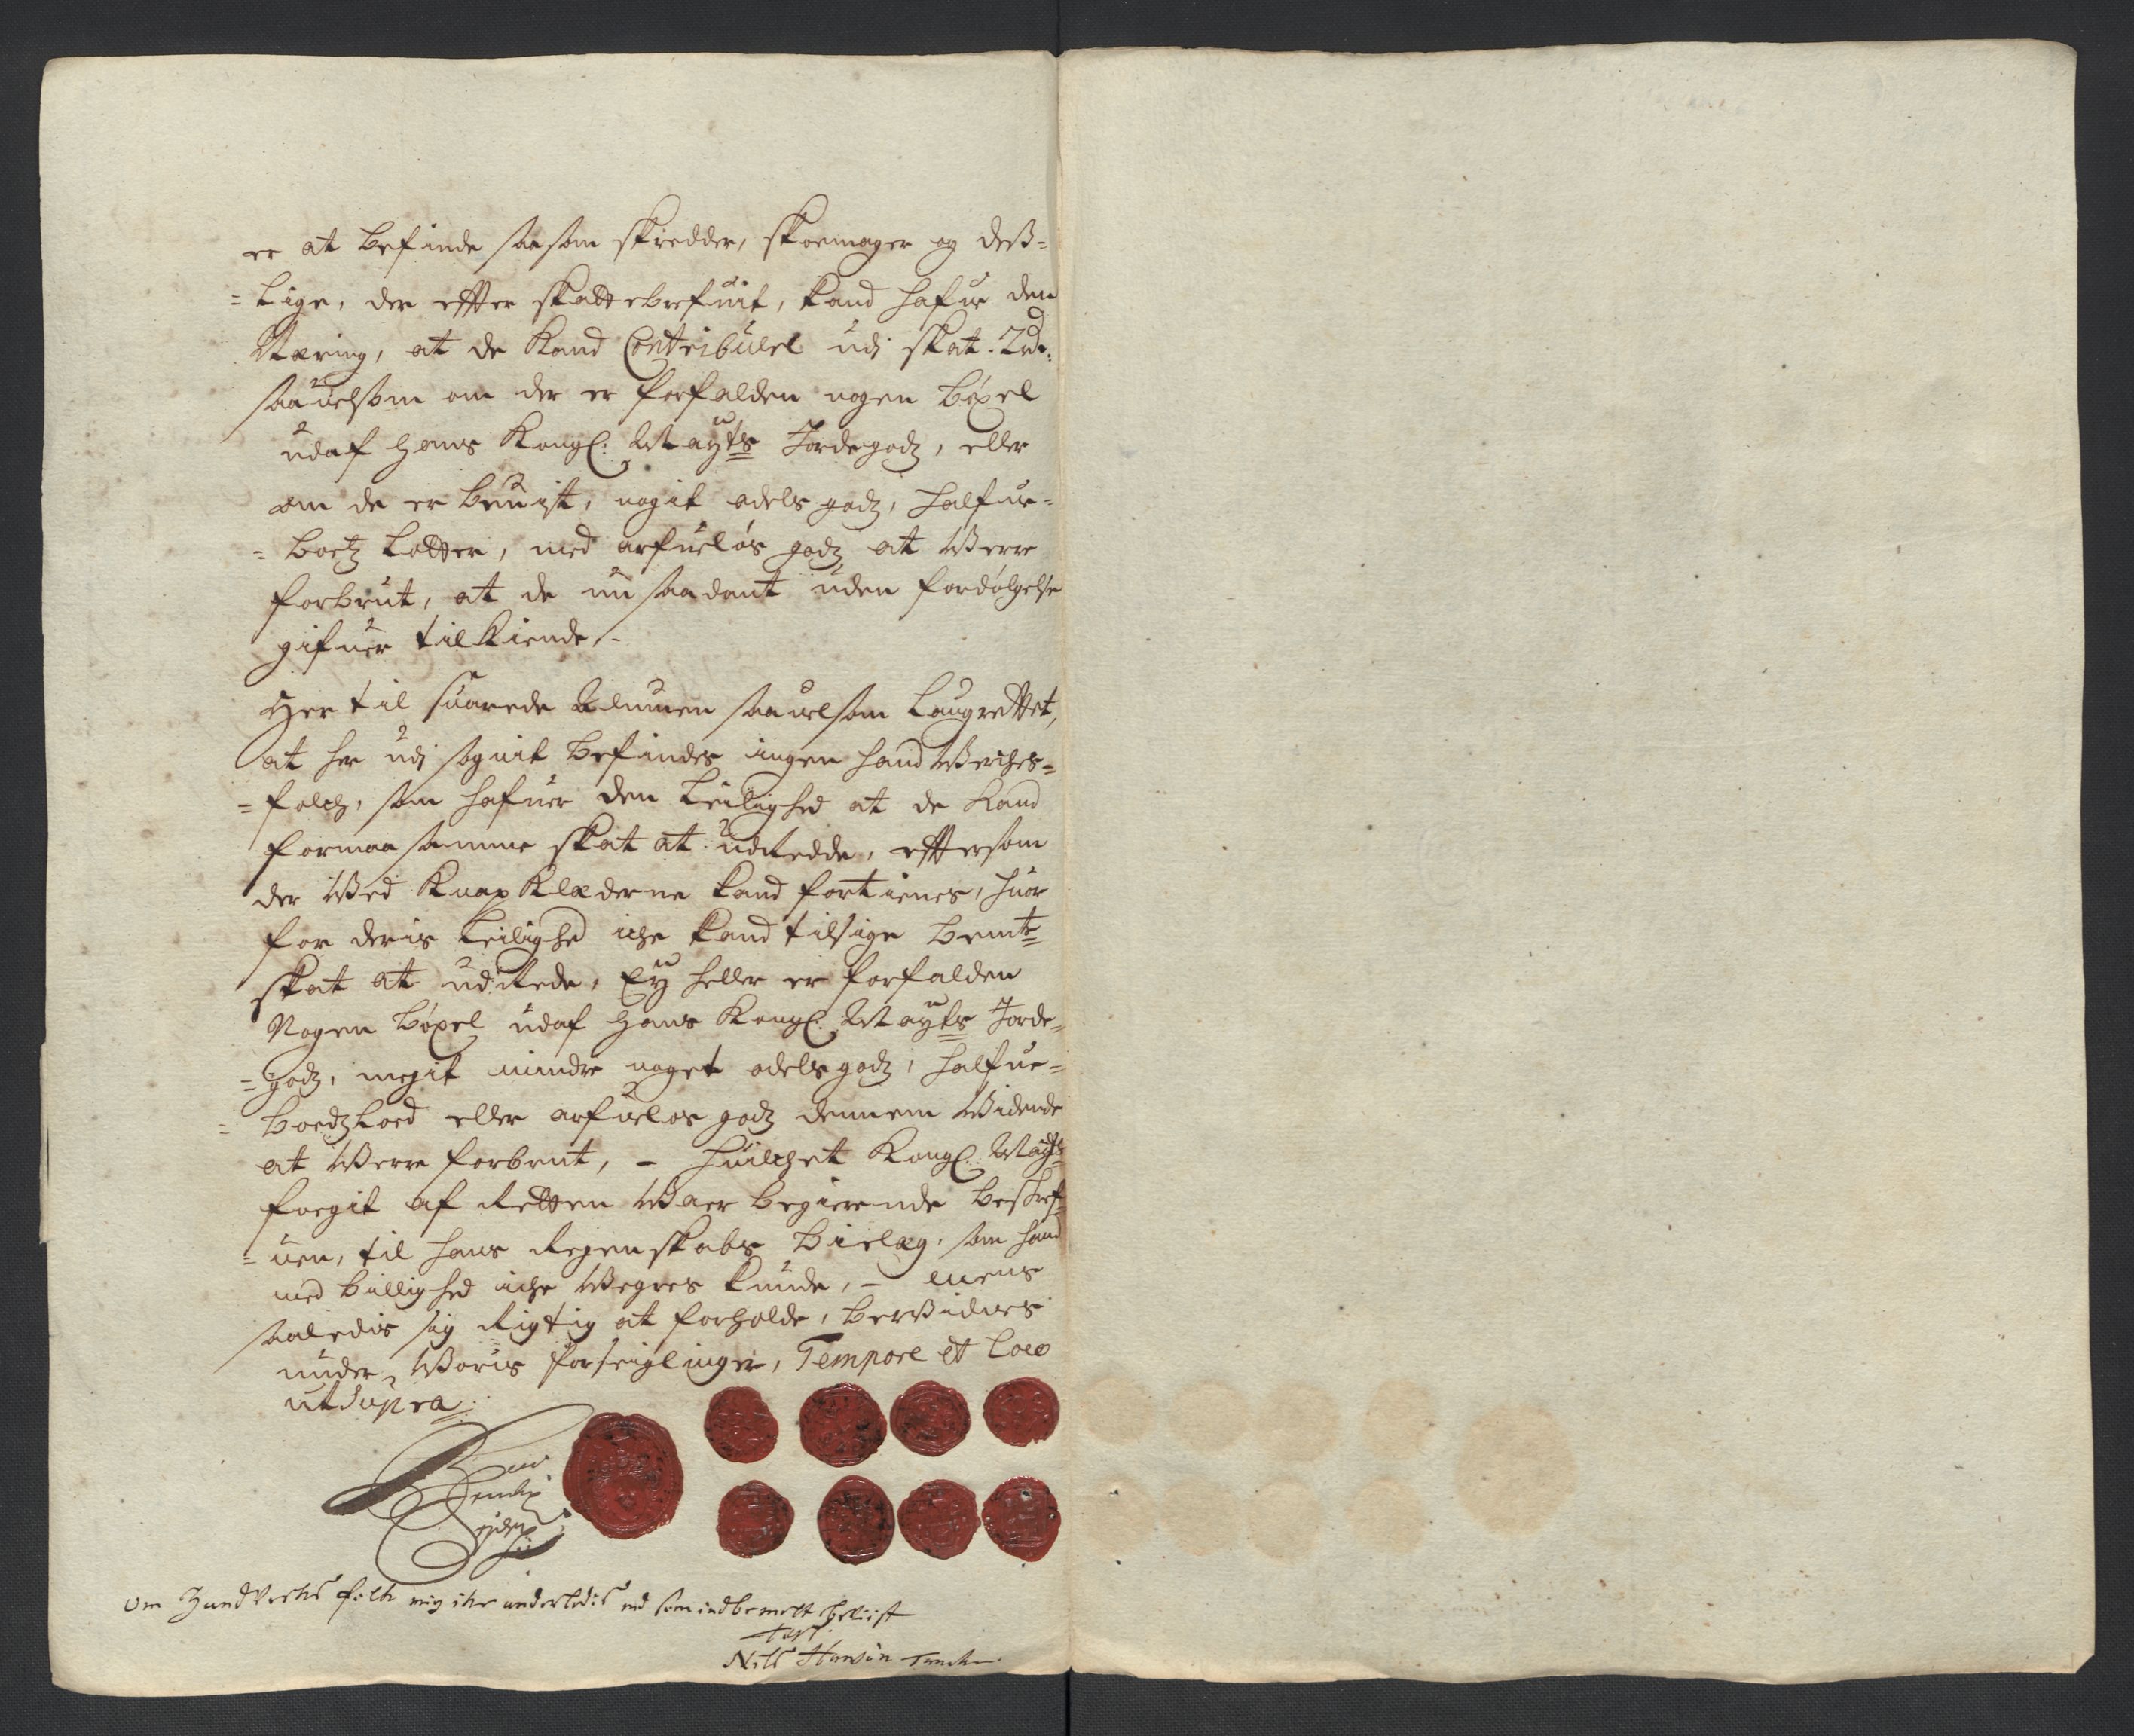 er at befinde saasom skredder, skoemager og deß-
= lige, der effter skattebrefuit, kand hafue den
Næring, at de kand Contribuere udj skat. 2de:
saauelsom om der er forfalden nogen böxel
udaf hans Kongl: Mayts Jordegodz, eller
om de er beuist, nogit odels godz, halfue-
= boetz lotter, med arfuelös godz at Were
forbrut, at de nu saadant uden fordölgelse
gifuer tilkiende,-
Her til suarede Almuen saauelsom Laugrettet,
at her udj sognit befindes ingen handWerchs-
= folch, som hafuer den leilighed at de kand
formaa samme skat at udredde, efftersom
der Wed knap klæderne kand fortienes, huor
for deris leilighed iche kand tilsige bemte
skat at udrede, Ey heller er forfalden
Nogen böxel udaf hans Kongl: Mayts Jorde-
= godz, megit mindre noget odelsgodz, halfue-
= boedzloed eller arfuelos godz dennem Widende
at Were forbrut, - huilchet Kongl: Mayts
foegit af Retten Waar begierende beskref-
= uen, til hans Regenskabs bielæg, som hand
med billighed iche Wegres kunde, -
saaledis sig Rigtig at forholde, berWidnes
under Woris forseiglinger, Tempore et Loco
ut Supra
Om Handverchs folk mig iche anderledis end som indbemelt beuist
Test.
Nils Hansøn